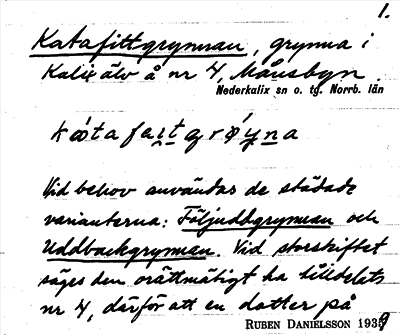 1.
Katafittgrynnan, grynna i
Kalix älv å nr 4, Månsbyn
Nederkalix sn o. tg. Norrb. län
Vid behov användas de städade
varianterna: Följuddgrynnan och
Uddbackgrynnan. Vid storskiftet
säges den orättmätigt ha tilldelats
nr 4, därför att en dotter på
RUBEN DANIELSSON 1939